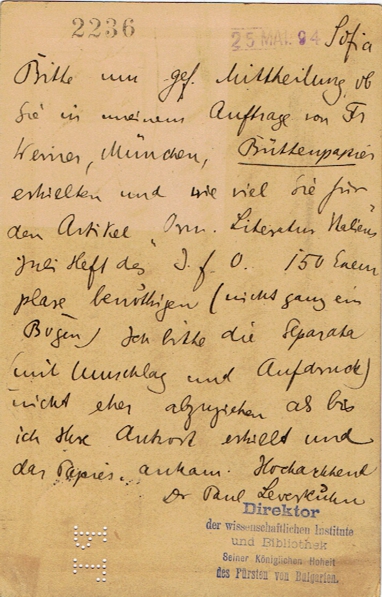 2236
25 MAI. 94 Sofia
Bitte um gef. Mittheilung ob
Sie in meinem Auftrage von Fr
Werner, München, Büttenpapier
erhielten und wie viel Sie für
den Artikel „Orn. Literatur Italiens"
Juli Heft des J. f. O. 150 Exem
plare benöthigen (nicht ganz ein
Bogen) Ich bitte die Separata
(mit Umschlag und Aufdruck)
nicht eher abzuziehen als bis
ich Ihre Antwort erhielt und
das Papier ankam. Hochachtend
Dr Paul Leverkühn
Direktor
der wissenschaftlichen Institute
und Bibliothek
Seiner Königlichen Hoheit
des Fürsten von Bulgarien.